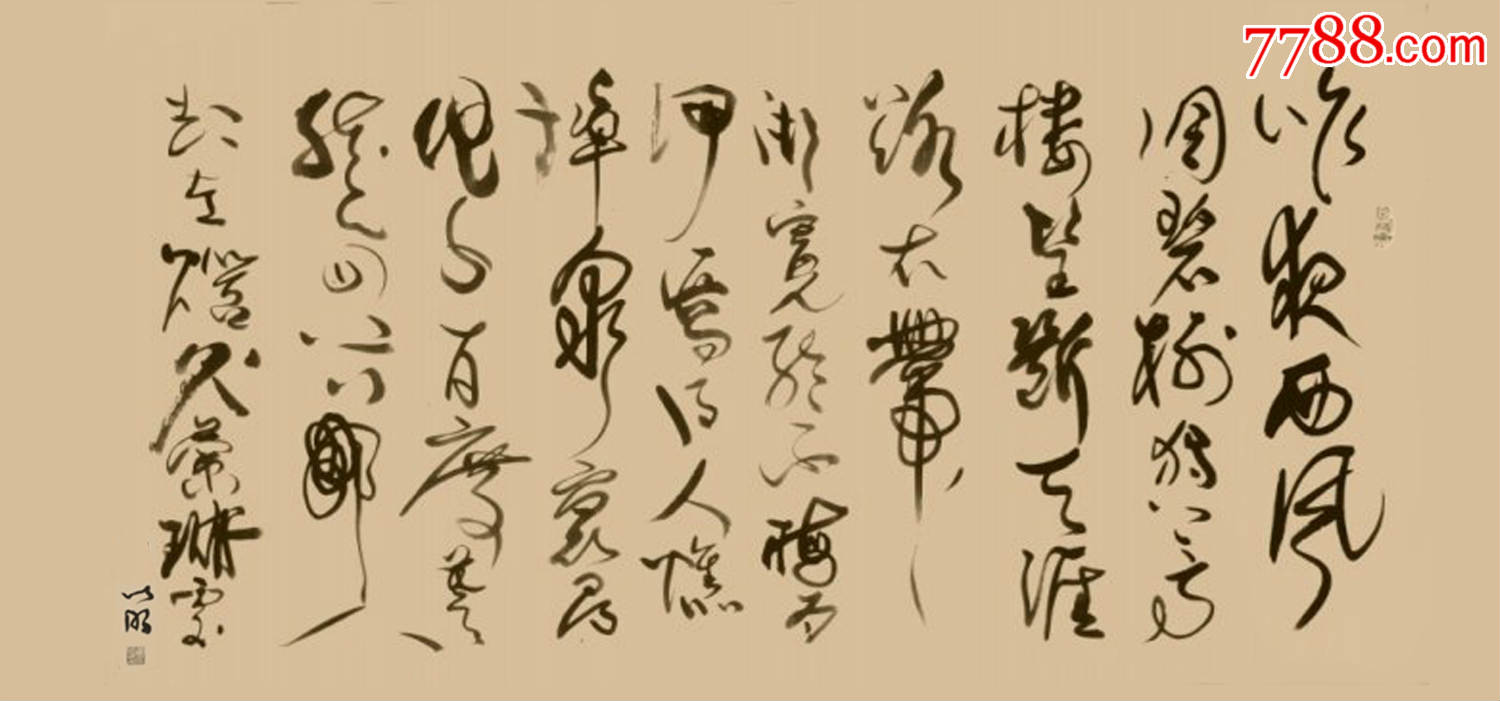 7788.com
昨夜西风
凋碧树独上高
楼望断天涯
路衣带
渐宽终不悔为
伊消得人憔
悴众里寻
他千百度蓦
然回首那人
却在灯火阑珊处